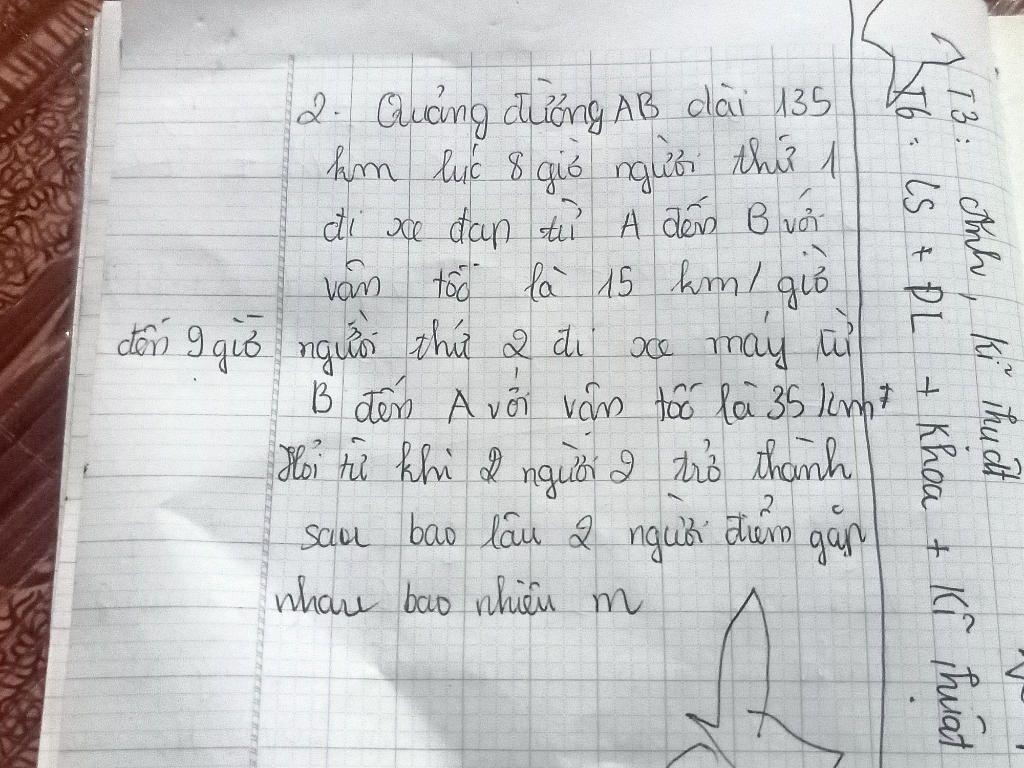 2. Quảng đường AB dài 135
km lúc 8 giờ người thứ 1
đi xe đạp từ A đến B với
vận tốc là 15 km/giờ
đến 9 giờ người thứ 2 đi xe máy từ
B đến A với vận tốc là 35 km
Hỏi từ khi người 2 trở thành
sau bao lâu 2 người điểm gặp
nhau bao nhiêu m
T3: Anh, Kĩ thuật
T6: LS + ĐL + Khoa + Kĩ thuật